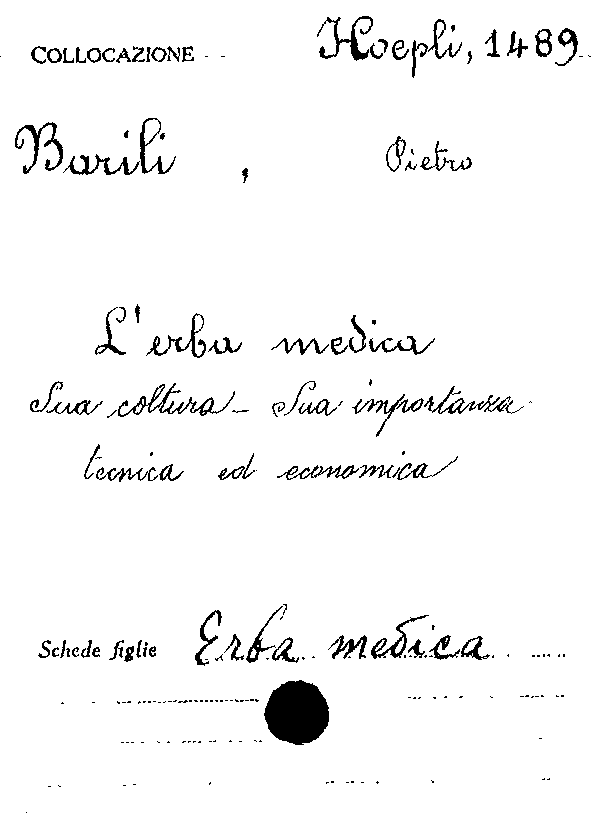 COLLOCAZIONE Hoepli, 1489
Barili, Pietro
L'erba medica
Sua coltura - Sua importanza
tecnica ed economica
Schede figlie Erba medica